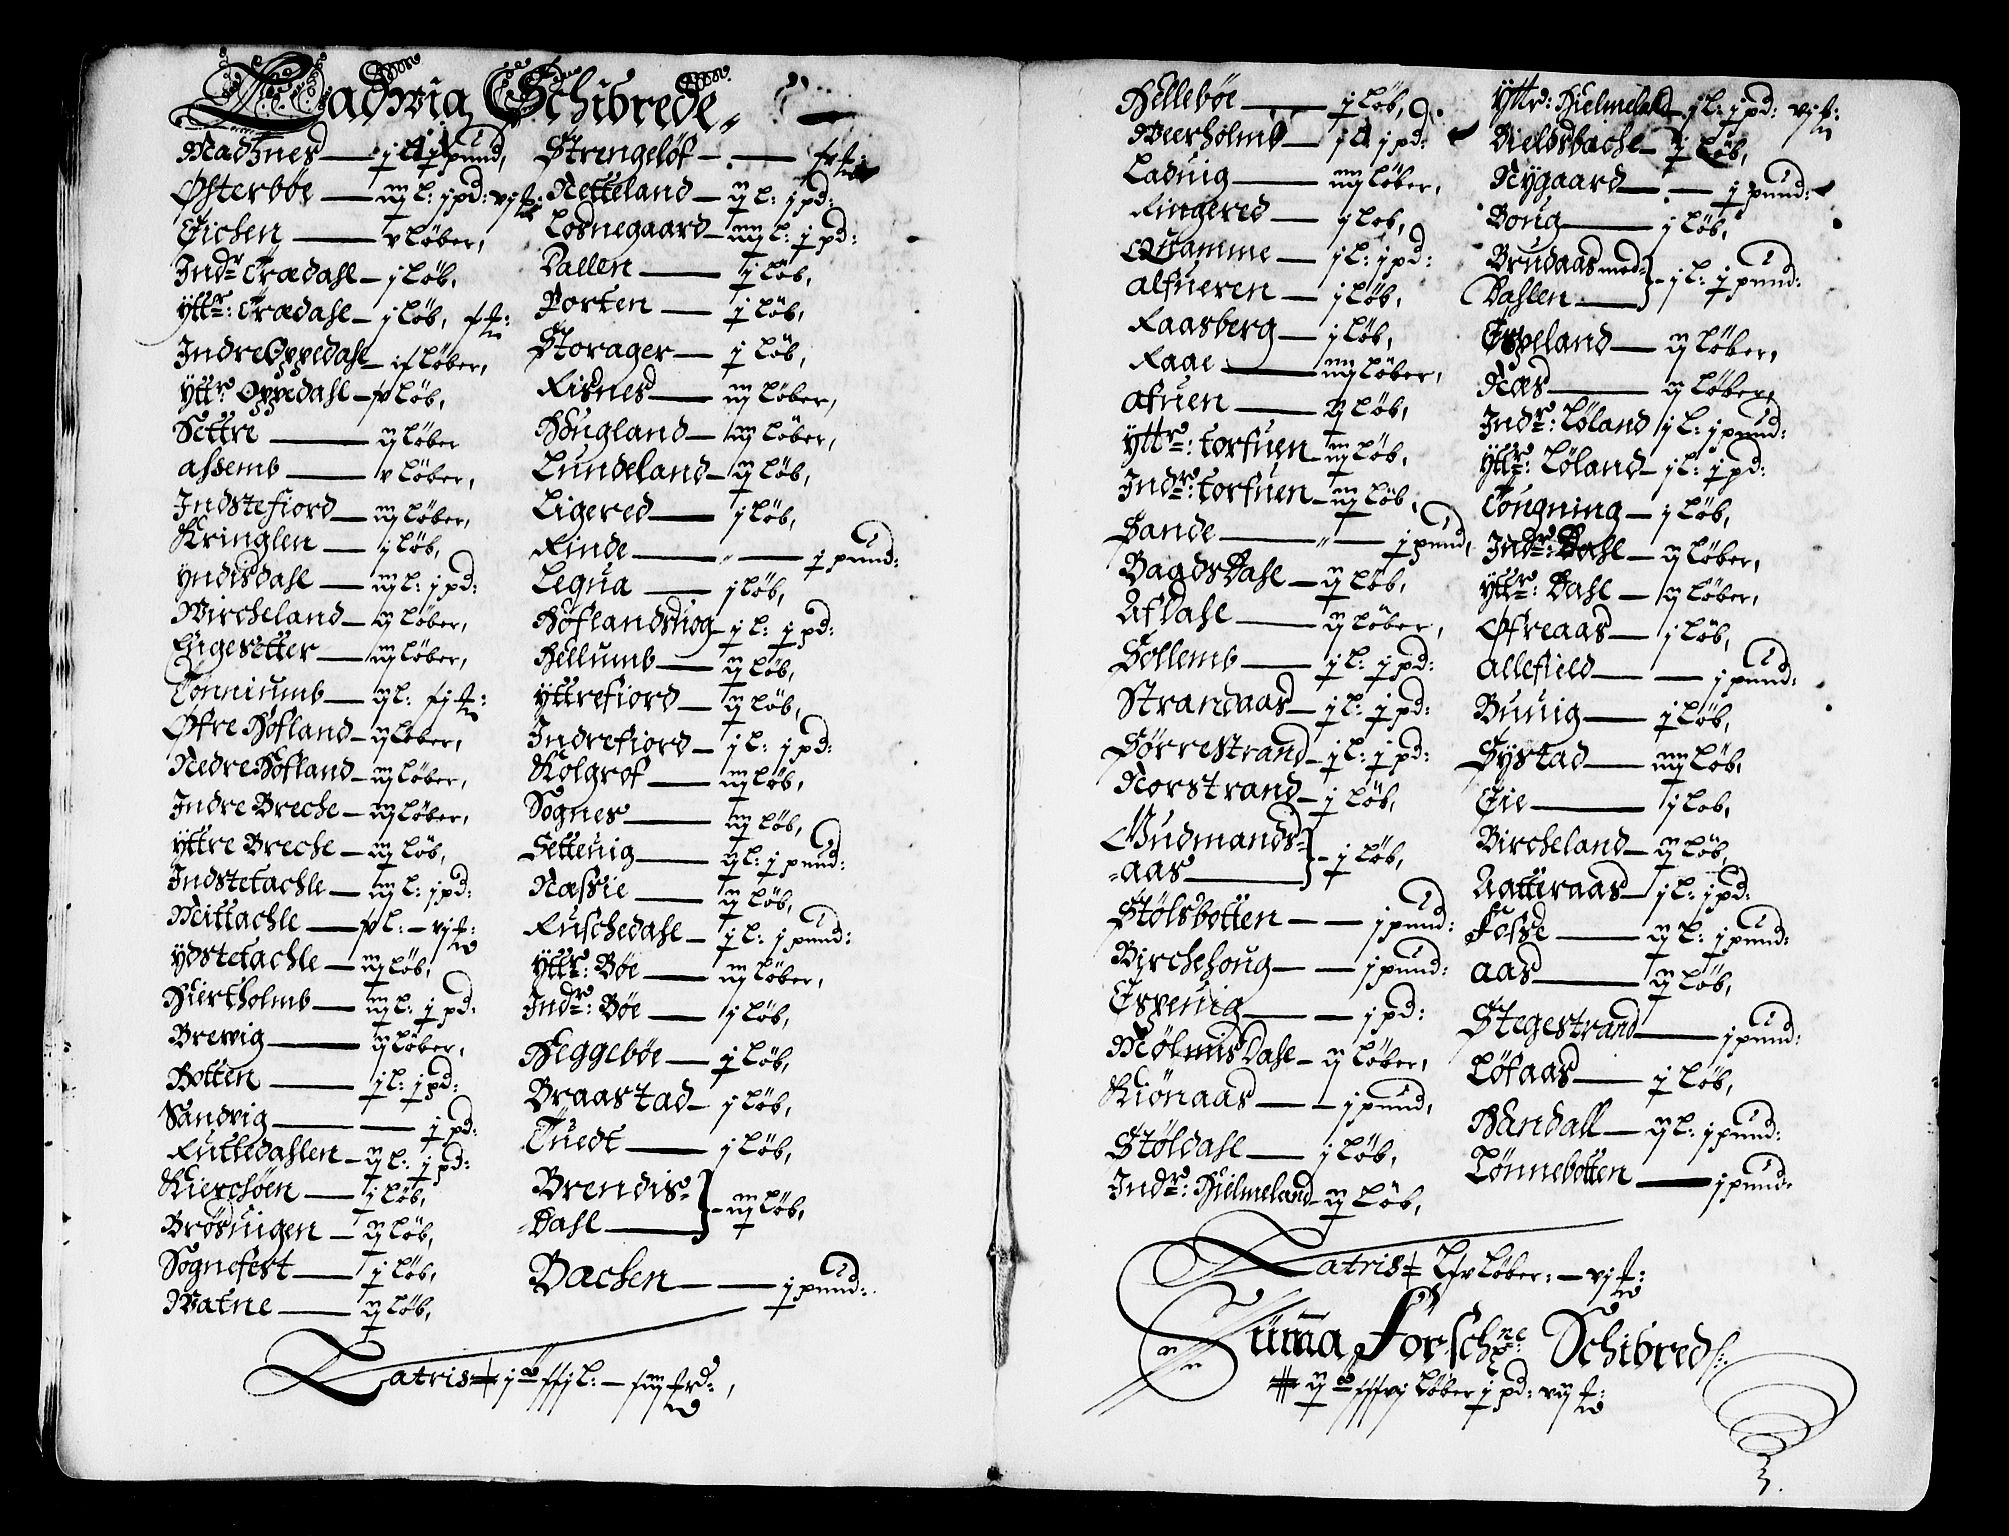 Ladwig Schibrede
Madznes — j l: j pund,
Østerbøe — iij l: j pd: vj
Eichen — v løber,
Indr Trædahl — j løb,
Yttr: Trædahl — j løb,
Indre Oppedahl — løber,
Yttr Oppedahl — løb,
Settre — ij løber
Assemb — v løber,
Indstefiord — iij løber,
Kringlen — j løb,
Yndisdahl — iij l: j pd:
Wircheland — ij løber,
Engesetter — iij løber,
Tonniumb — ij l:
Øfre Hofland — ij løber,
Nedre Hofland — iij løber,
Indre Breche — iij løber,
Yttre Breche — iij løb,
Indstetachle — iij l: j pd:
Mittachle — l: — vj
Ydstetachle — iij løb,
Hiertholmb — iij l: j pd:
Brewig — ij løber,
Botten — j l: j pd:
Sandvig — j pd:
Ruttedahlen — ij l: j pd:
Kierchøen — j løb,
Brøsuigen — ij løb,
Sognefest — j løb,
Watne — ij løb,
Latris
Strengeløf —
Netteland — ij l: j pd:
Losnegaard — iiij l: j pd:
Dallen — j løb,
Porten — j løb,
Storager — j løb,
Risnes — iij løber,
Hougland — iij løber,
Lundeland — ij løb,
Ligered — j løb,
Rinde — j pund:
Legua — j løb,
Høflandskog — j l: j pd:
Hellumb — ij løb,
Yttrefiord — ij løb,
Indrefiord — j l: j pd:
Kolgrof — iij løb,
Sognes — iij løb,
Setteuig — ij l: j pund:
Næssie — ij løb,
Ruschedahl — j l: j pund:
Yttr: Bøe — iij løber,
Indr: Bøe — j løb,
Heggebøe — j løb,
Braastad — j løb,
Tuedt — j løb,
Brendis-
-Dahl — iij løb,
Bachen — j pund:
Hellebøe — j løb,
Meerholmb — j l: j pd:
Laduig — iiij løber,
Ringered — j løb,
Quamme — j l: j pd:
Alfueren — j løb,
Raasberg — j løb,
Raae — iiij løber,
Afuen — ij løb,
Yttr: Torfuen — iij løb,
Indr: Torfuen — iij løb,
Sande — j pund,
Bagds Dahl — ij løb,
Afdahl — ij løber,
Sollemb — j l: j pd:
Strandaas — j l: j pd:
Sørrestrand — j l: j pd:
Norstrand — j løb,
Gudmands-
-aas — j løb,
Stølsbotten — j pund:
Birchehoug — j pund:
Espeuig — j pd:
Mølmisdahl — ij løber,
Kiønaas — j pund,
Støldahl — j løb,
Indr: Hielmeland — ij løb,
Yttr: Hielmeland — j l: j pd: vj
Bieldsbachl — j løb,
Nygaard — j pund:
Boug — j løb,
Brudaas med-
Dahlen — j l: j pund:
Espeland — ij løber,
Næs — ij løber,
Indr: Løland j l: j pund:
Yttr: Løland — j l: j pd:
Tougning — j løb,
Indr: Dahl — ij løber,
Yttr: Dahl — ij løber,
Øfreaas — j løb,
Allefield — j pund:
Buuig — j løb,
Systad — iiij løb,
Eie — j løb,
Bircheland — ij løb,
Aattiraas — j l: j pd:
Fosse — ij l: j pund:
Aas — ij løb,
Stegestrand — j pund:
Løfaas — j løb,
Handall — ij l: j pund:
Lønnebotten — j pund:
Latris løber: — vj
Suma Forschne Schibred
løber j pd: vij